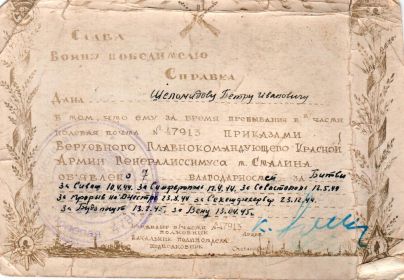 Слава
Воину победителю
Справка
Дана Шеломидову Петру Ивановичу
в том, что ему за время пребывания в части
полевая почта № 47913 приказами
Верховного Главнокомандующего Красной
Армии Генералиссимуса т. Сталина
объявлено 7 благодарностей за Битвы
за Сиваш 10.4.44. за Симферополь 13.4.44. за Севастополь 12.5.44
за прорыв на Днестре 23.8.44 за Секешфехервар 23.12.44.
за Будапешт 13.2.45, за Вену 13.04.45.
части
полковник
Начальник политотдела
подполковник